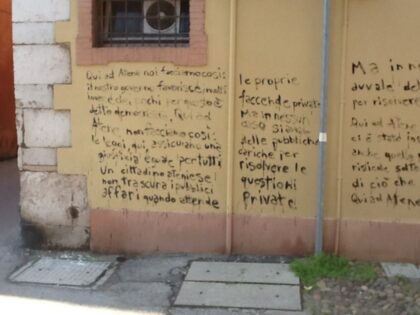 Qui ad Atene noi facciamo così:
il nostro governo favorisce molti
e pochi per questo è
detto democrazia. Qui ad
Atene noi facciamo così:
le leggi, qui, assicurano una
giustizia eguale per tutti
un cittadino ateniese
non trascura i pubblici
affari quando attende
le proprie
faccende private
Ma in nessun
caso si avvale
delle pubbliche
cariche per
risolvere le
questioni
Private
Ma in n
avvale del
per risolver
Qui ad Atene
ci è stato ins
anche quelle
risiede
di ciò che
Qui ad Atene